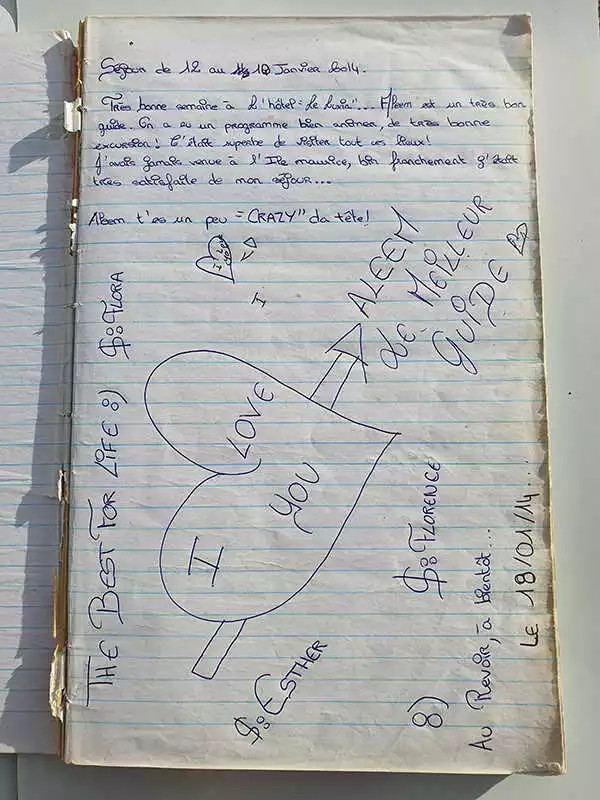 Séjour de 12 au 18 Janvier 2014.
Très bonne semaine à l'hôtel "Le
Aleem est un très bon
guide. On a eu un programme bien animer, de très bonne
excursion! C'était superbe de visiter tout ces lieux!
J'avais jamais venue à l'Ile maurice, bin franchement j'était
très satisfaite de mon séjour...
Aleem t'es un peu "CRAZY" da tête!
THE BEST FOR LIFE :)
$: FLORA
I LOVE YOU
ALEEM
LE MEILLEUR
GUIDE
I
LOVE
YOU
$: ESTHER
$: FLORENCE
8)
Au Revoir, à bientôt...
LE 18/01/14...